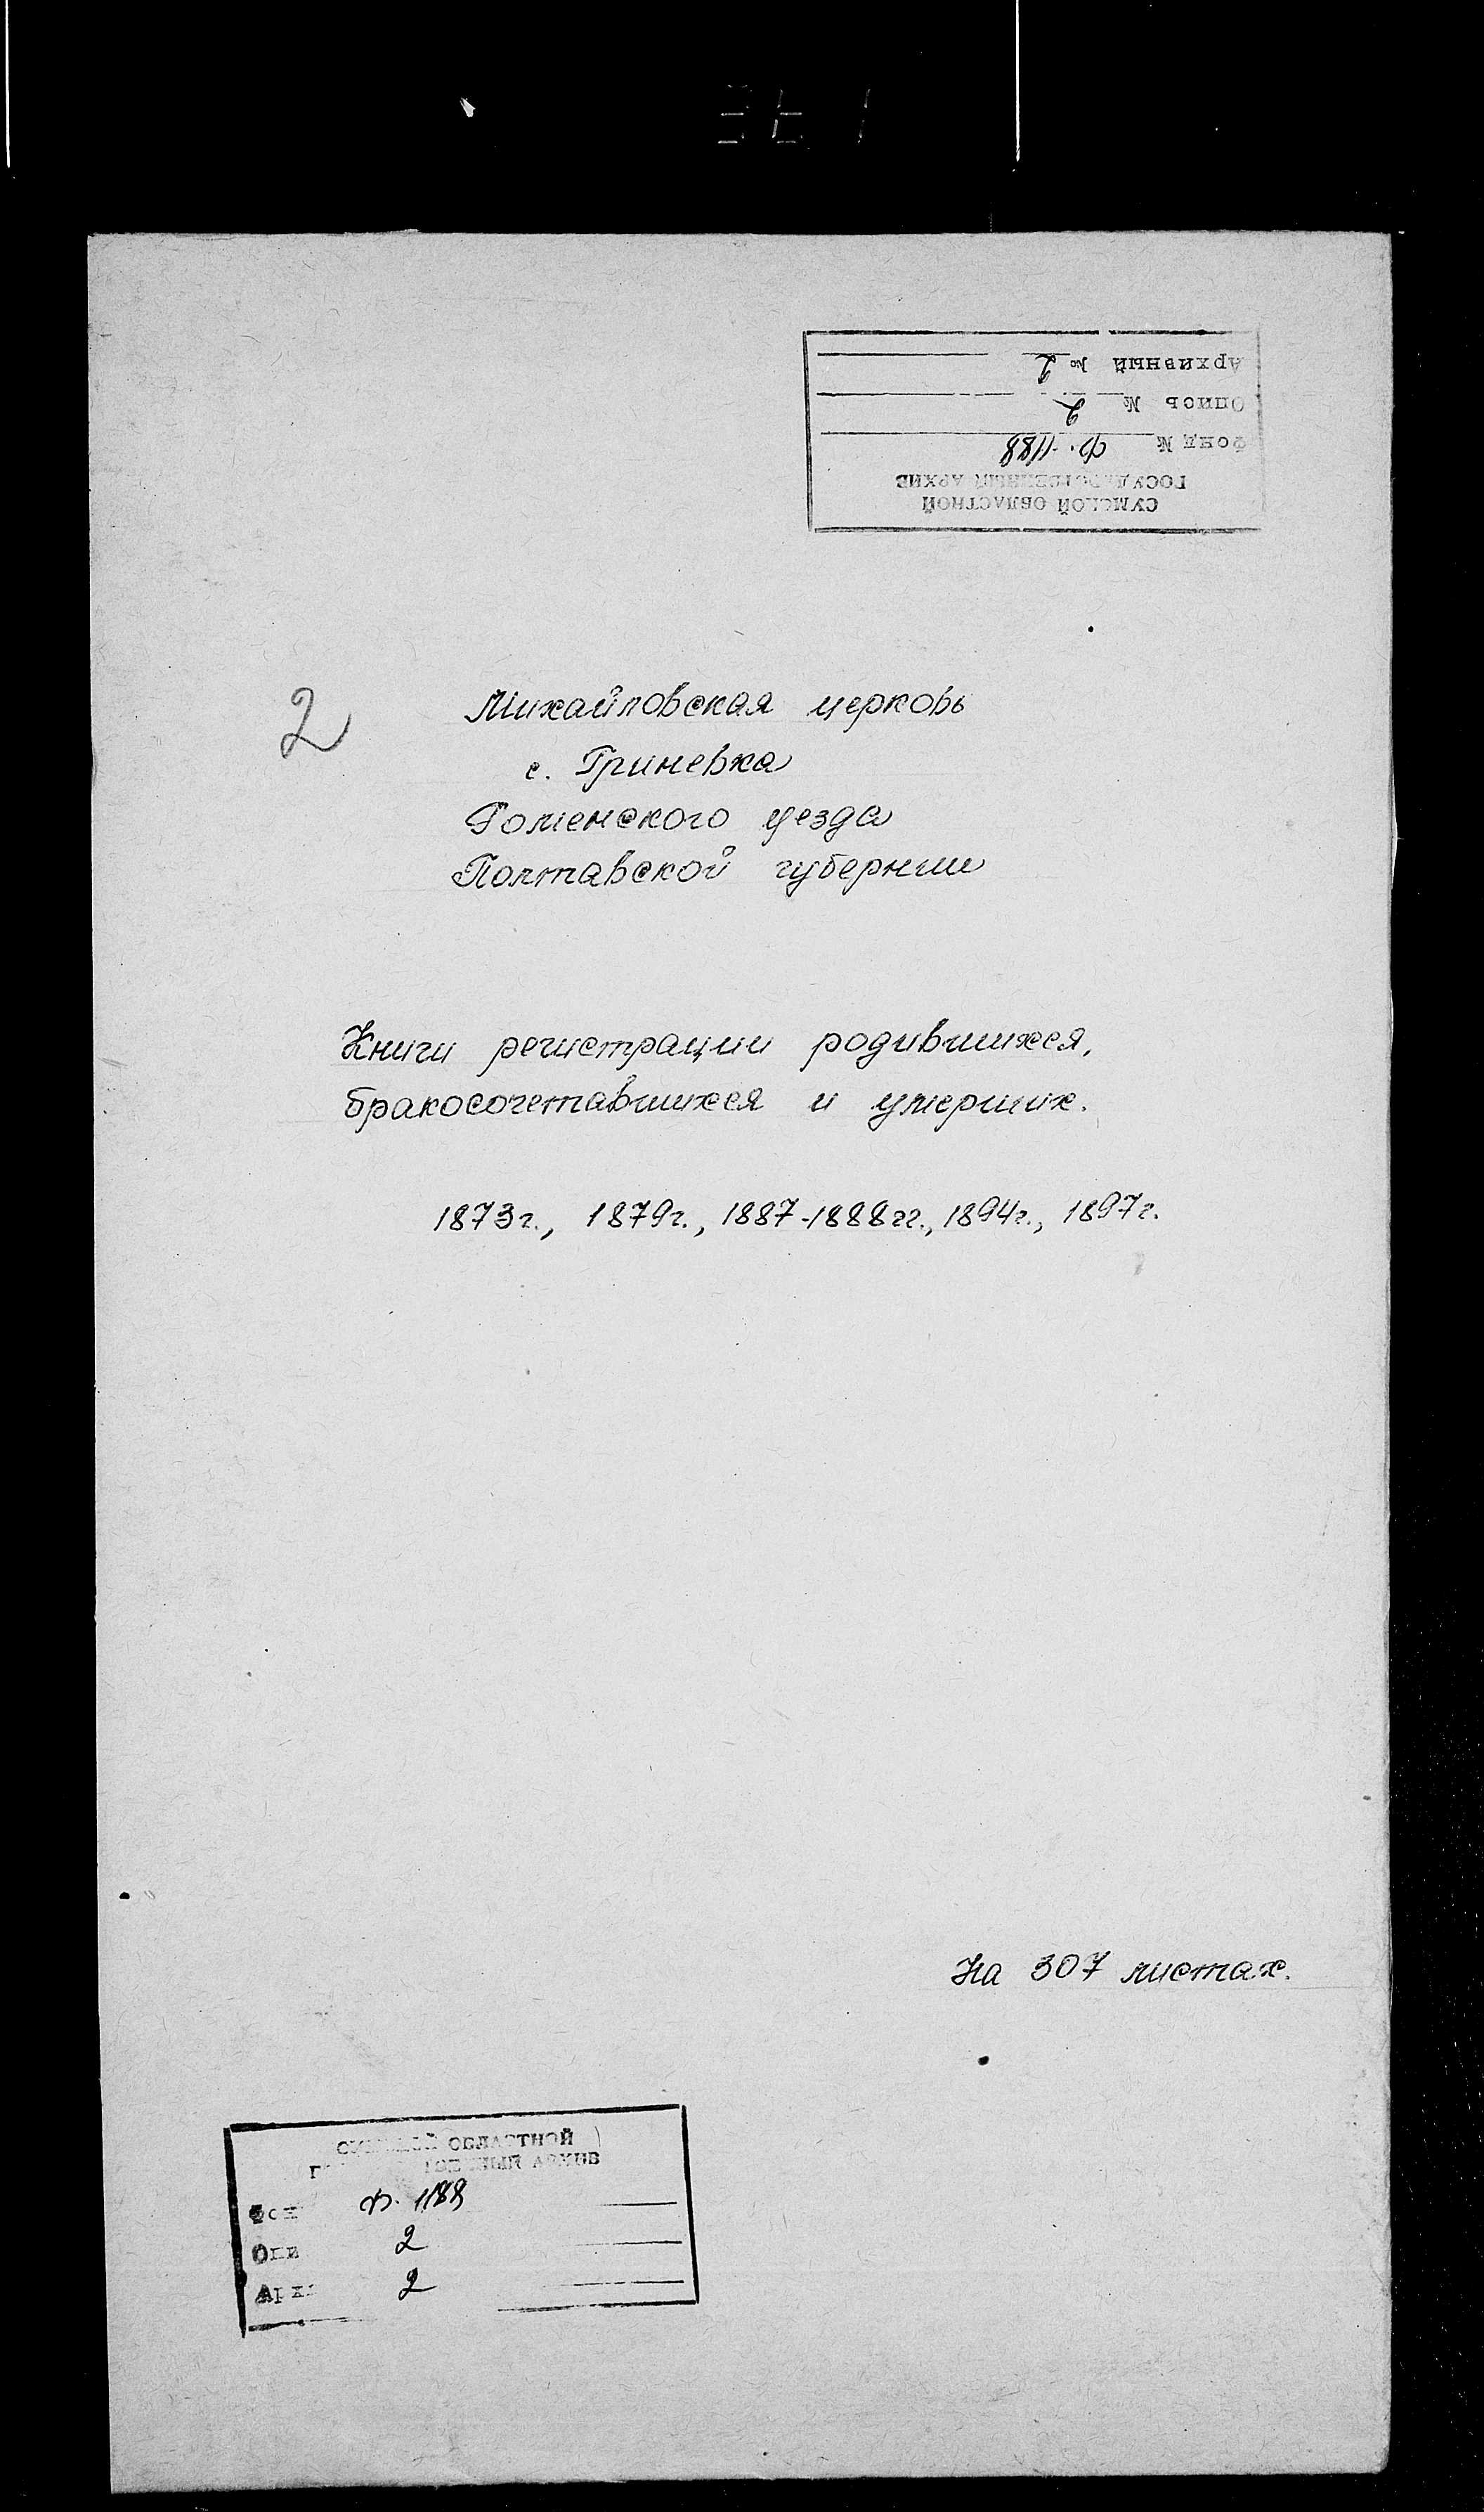 СУМСКОЙ ОБЛАСТНОЙ
ГОСУДАРСТВЕННЫЙ АРХИВ
Фонд № Ф.-1188
Опись № 2
Архивный № 2
2
Михайловская церковь
с. Гриневка
Роменского уезда
Полтавской губернии
Книги регистрации родившихся,
бракосочетавшихся и умерших.
1873г., 1879г., 1887-1888гг., 1894г., 1897г.
На 307 листах.
СУМСКОЙ ОБЛАСТНОЙ
ГОСУДАРСТВЕННЫЙ АРХИВ
Фон Ф. 1188
Опи 2
Архи 2